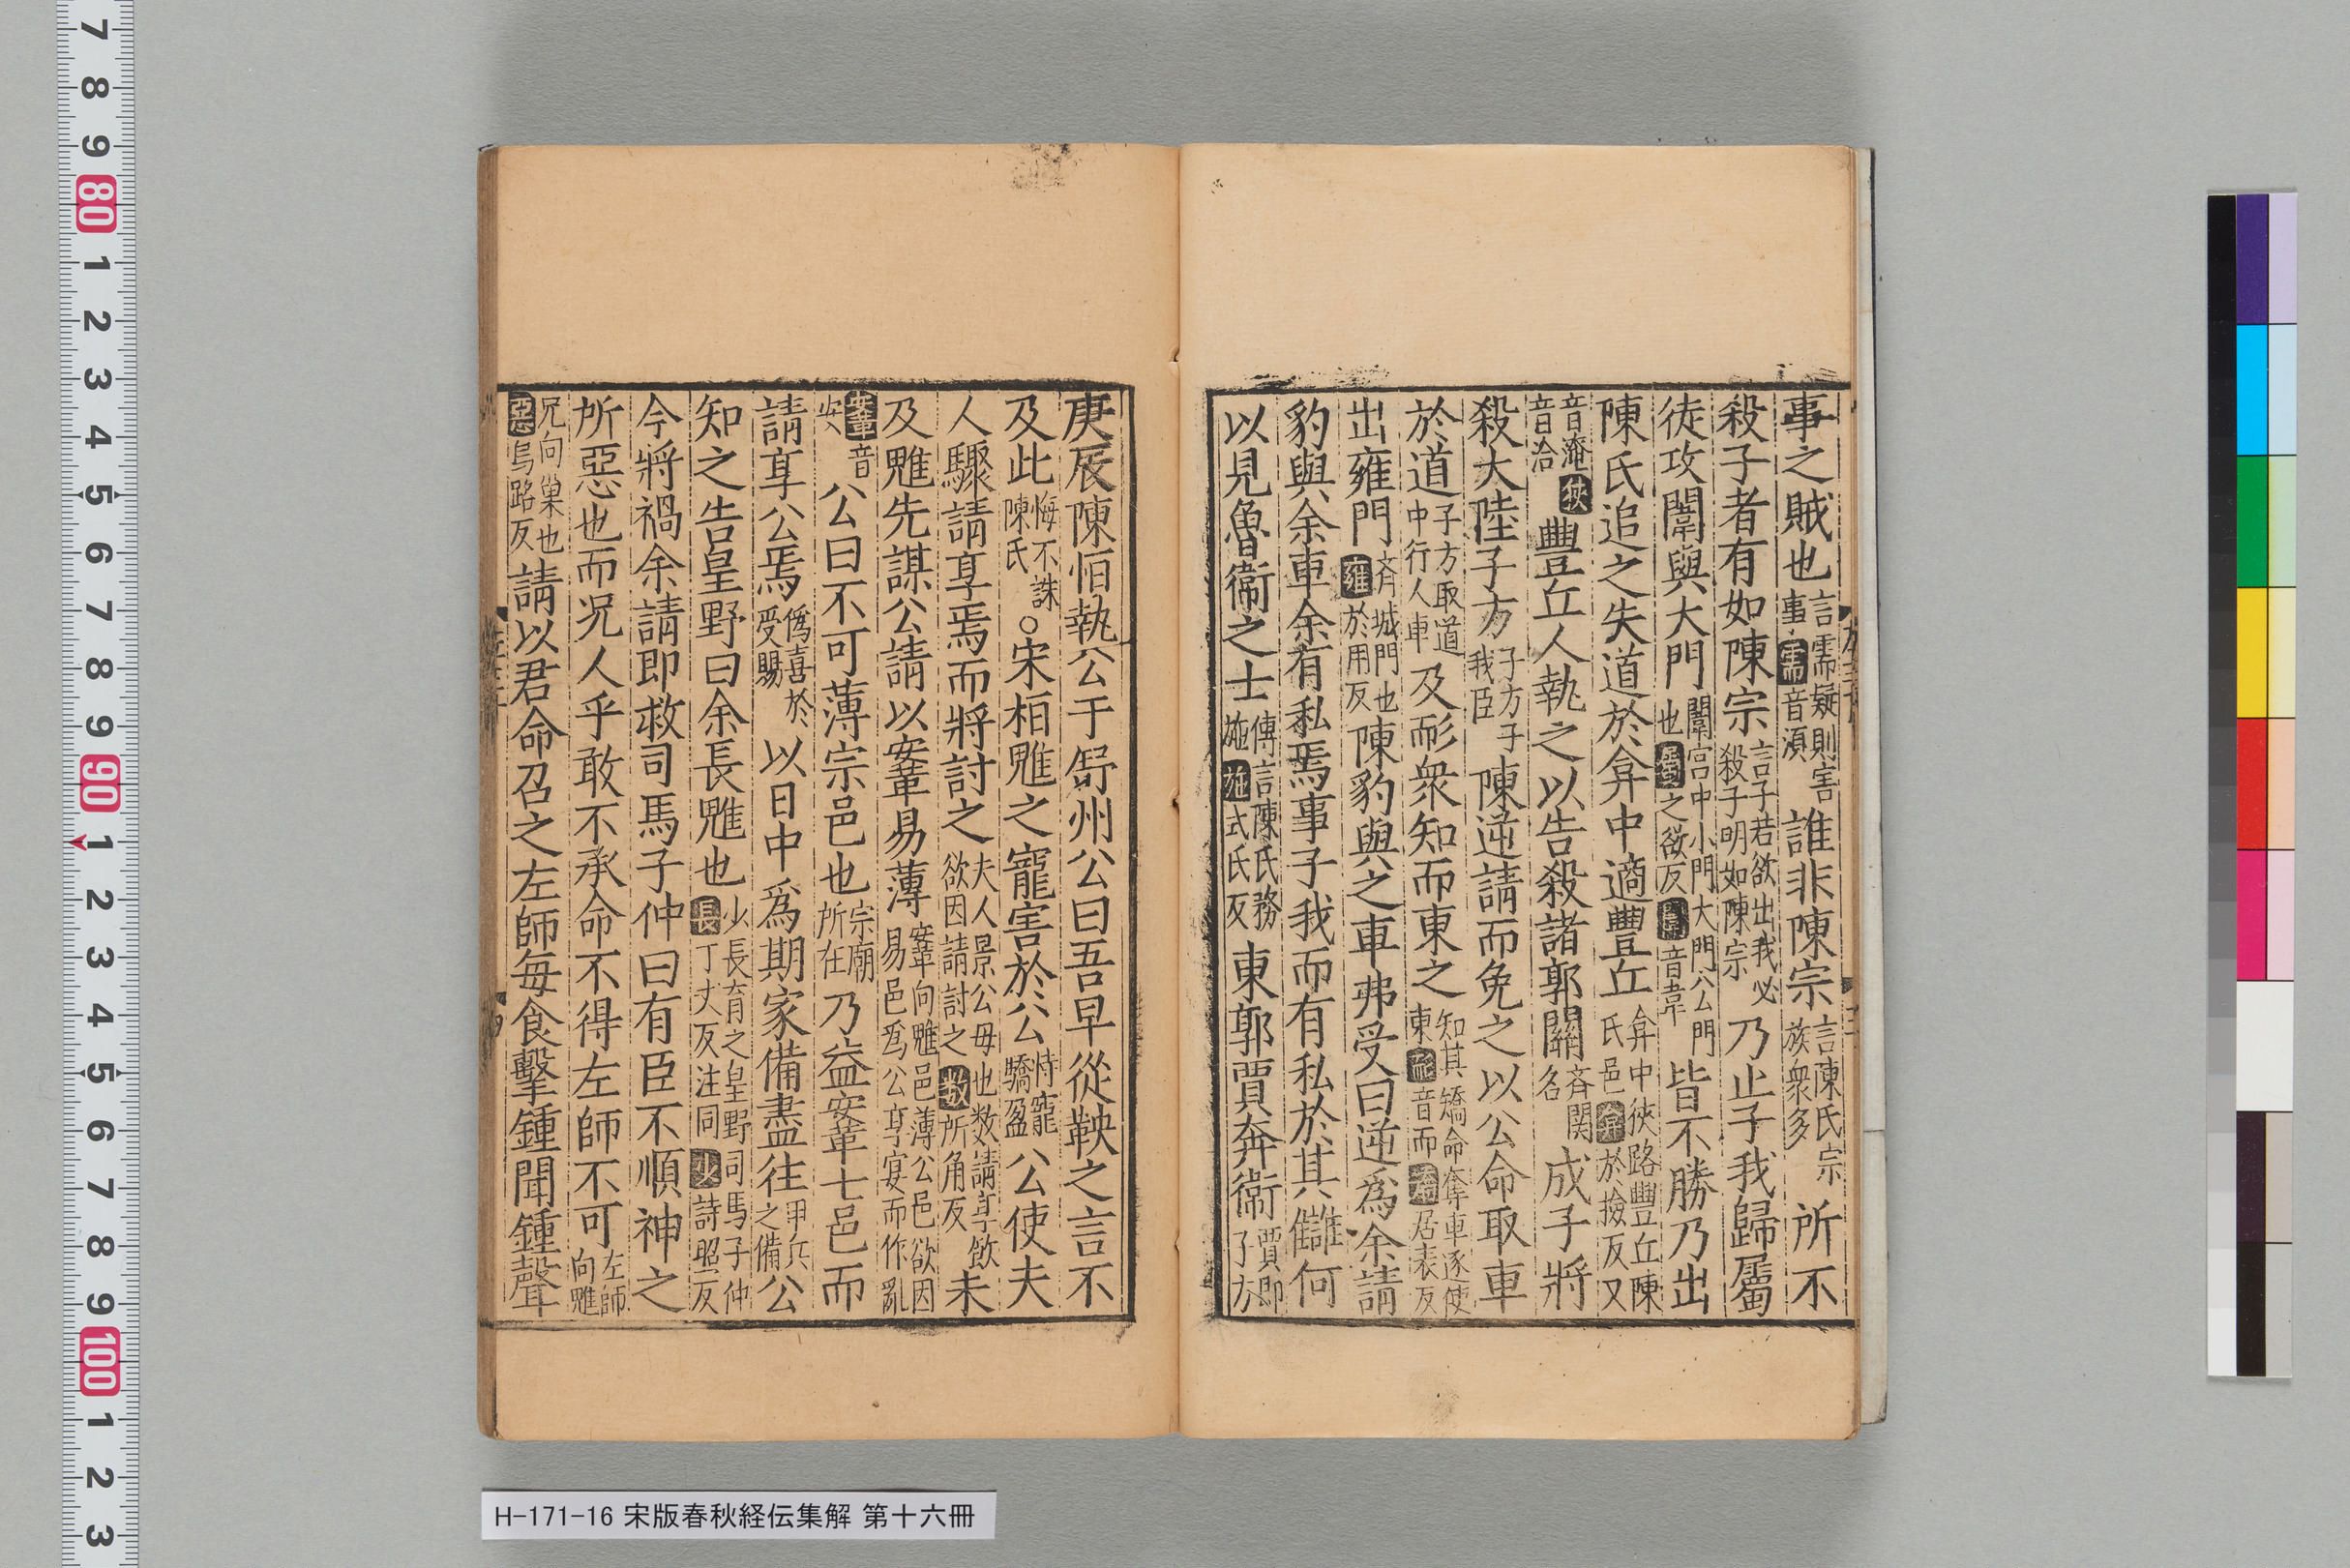 事之賊也言需疑則害事需音須誰非陳宗言陳氏宗族衆多所不
殺子者有如陳宗言子若欲出我必殺子明如陳宗乃止子我歸屬
徒攻闈與大門闈宮中小門大門公門也屬之欲反闈音韋皆不勝乃出
陳氏追之失道於弇中適豐丘弇中狹路豐丘陳氏邑弇於撿反又
音淹狹音洽豐丘人執之以告殺諸郭關齐関名成子將
殺大陸子方子方子我臣陳逆請而免之以公命取車
於道子方取道中行人車及耏衆知而東之知其矯命奪車逐使東耏音而矯居表反
出雍門齐城門也雍於用反陳豹與之車弗受曰逆爲余請
豹與余車余有私焉事子我而有私於其讎何
以見魯衞之士傳言陳氏務施施式氏反東郭賈奔衞賈即子方
庚辰陳恒執公于舒州公曰吾早從鞅之言不
及此悔不誅陳氏○宋桓魋之寵害於公恃寵驕盈公使夫
人驟請享焉而將討之夫人景公母也数請享飲欲因請討之数所角反未
及魋先謀公請以鞌易薄鞌向魋邑薄公邑欲因易邑爲公享宴而作亂
鞌音安公曰不可薄宗邑也宗廟所在乃益鞌七邑而
請享公焉僞喜於受賜以日中爲期家備盡往甲兵之備公
知之告皇野曰余長魋也少長育之皇野司馬子仲長丁丈反注同少詩照反
今將禍余請即救司馬子仲曰有臣不順神之
所惡也而况人乎敢不承命不得左師不可左師向魋
兄向巢也惡烏路反請以君命召之左師每食擊鍾聞鍾聲
H-171-16 宋版春秋経伝集解 第十六冊
7 8 9 80 1 2 3 4 5 6 7 8 9 90 1 2 3 4 5 6 7 8 9 100 1 2 3